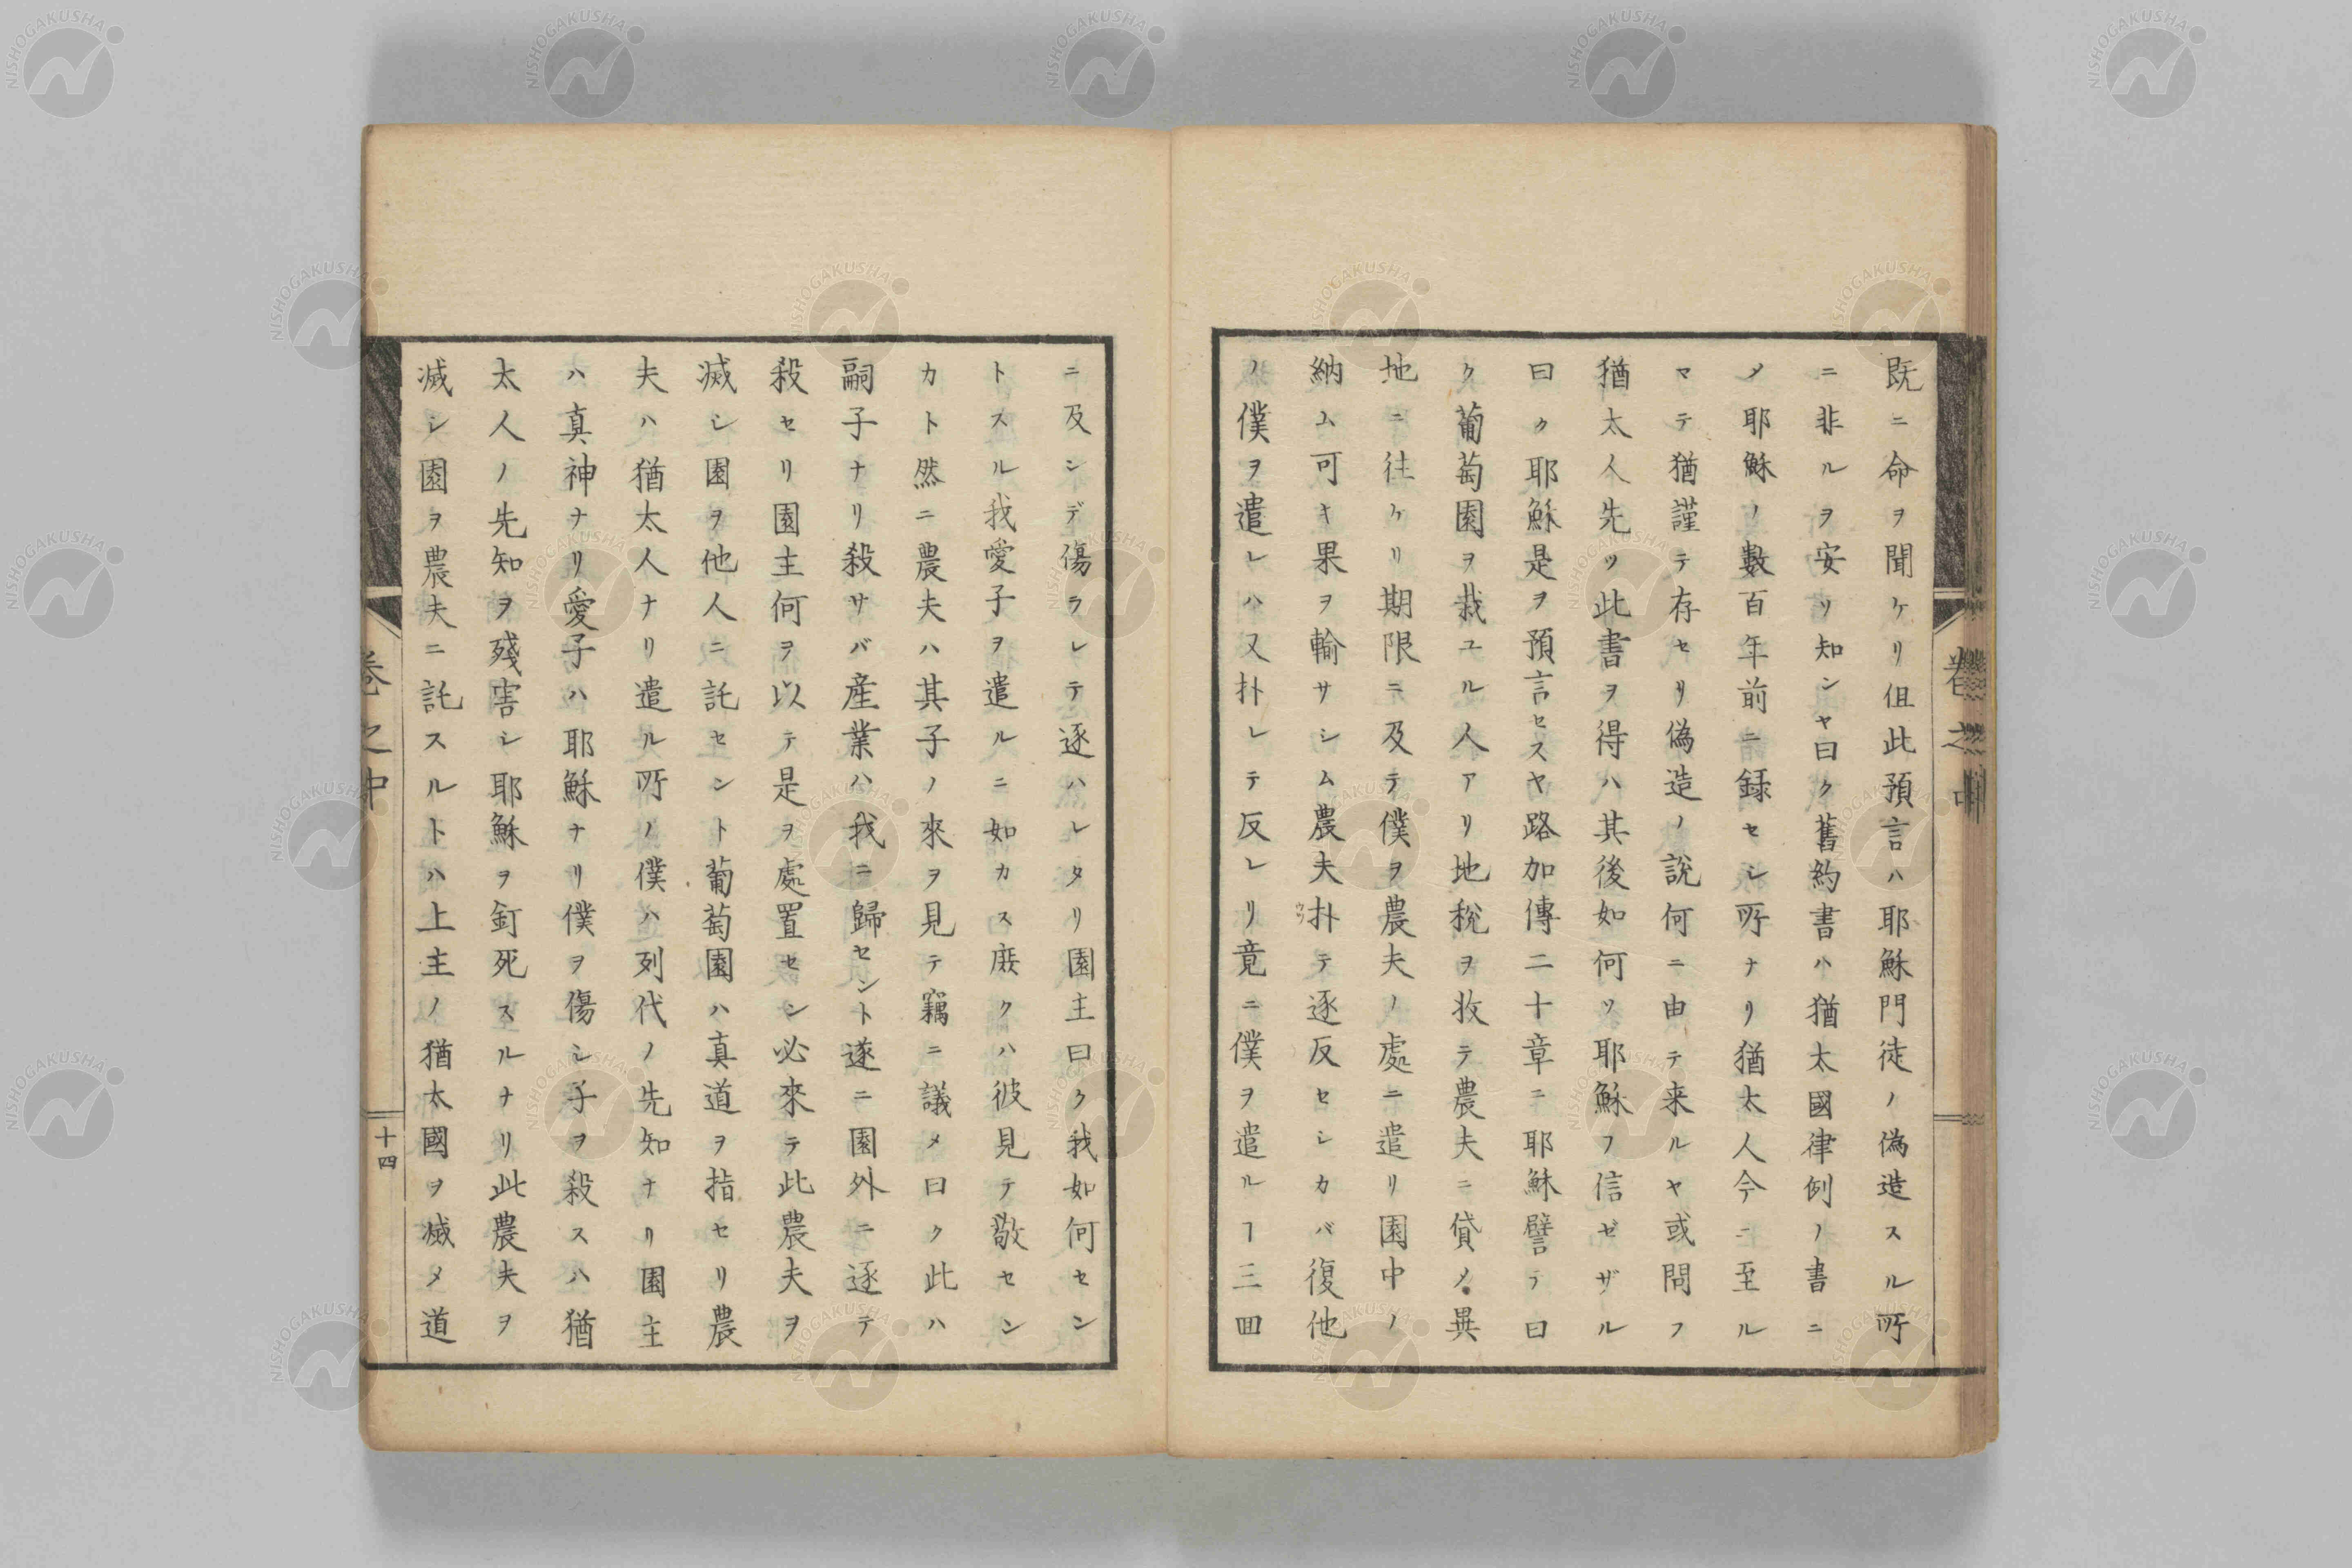 既ニ命ヲ聞ケリ但此預言ハ耶穌門徒ノ偽造スル所
ニ非ルヲ安ソ知ンヤ曰ク舊約書ハ猶太國律例ノ書ニ
メ耶穌ノ數百年前ニ録セシ所ナリ猶太人今ニ至ル
マテ猶謹テ存セリ偽造ノ說何ニ由テ来ルヤ或問フ
猶太人先ツ此書ヲ得ハ其後如何ソ耶穌フ信ゼザル
曰ク耶穌是ヲ預言セスヤ路加傳二十章ニ耶穌譬テ曰
ク葡萄園ヲ栽ユル人アリ地稅ヲ收テ農夫ニ貸メ異
地ニ往ケリ期限ニ及テ僕ヲ農夫ノ處ニ遣リ園中ノ
納ム可キ果ヲ輸サシム農夫扑テ逐反セシカバ復他
ウツ
ノ僕ヲ遣レハ又扑レテ反レリ竟ニ僕ヲ遣ルヿ三回
ニ及ンデ傷ラレテ逐ハレタリ園主曰ク我如何セン
トスル我愛子ヲ遣ルニ如カス庶クハ彼見テ敬セン
カト然ニ農夫ハ其子ノ來ヲ見テ竊ニ議メ曰ク此ハ
嗣子ナリ殺サバ産業ハ我ニ歸セント遂ニ園外ニ逐テ
殺セリ園主何ヲ以テ是ヲ處置セン必來テ此農夫ヲ
滅シ園ヲ他人ニ託セント葡萄園ハ真道ヲ指セリ農
夫ハ猶太人ナリ遣ル所ノ僕ハ列代ノ先知ナリ園主
ハ真神ナリ愛子ハ耶穌ナリ僕ヲ傷シ子ヲ殺スハ猶
太人ノ先知ヲ殘害シ耶穌ヲ釘死スルナリ此農夫ヲ
滅シ園ヲ農夫ニ託スルトハ上主ノ猶太國ヲ滅メ道
卷之中
十四
NISHOGAKUSHA